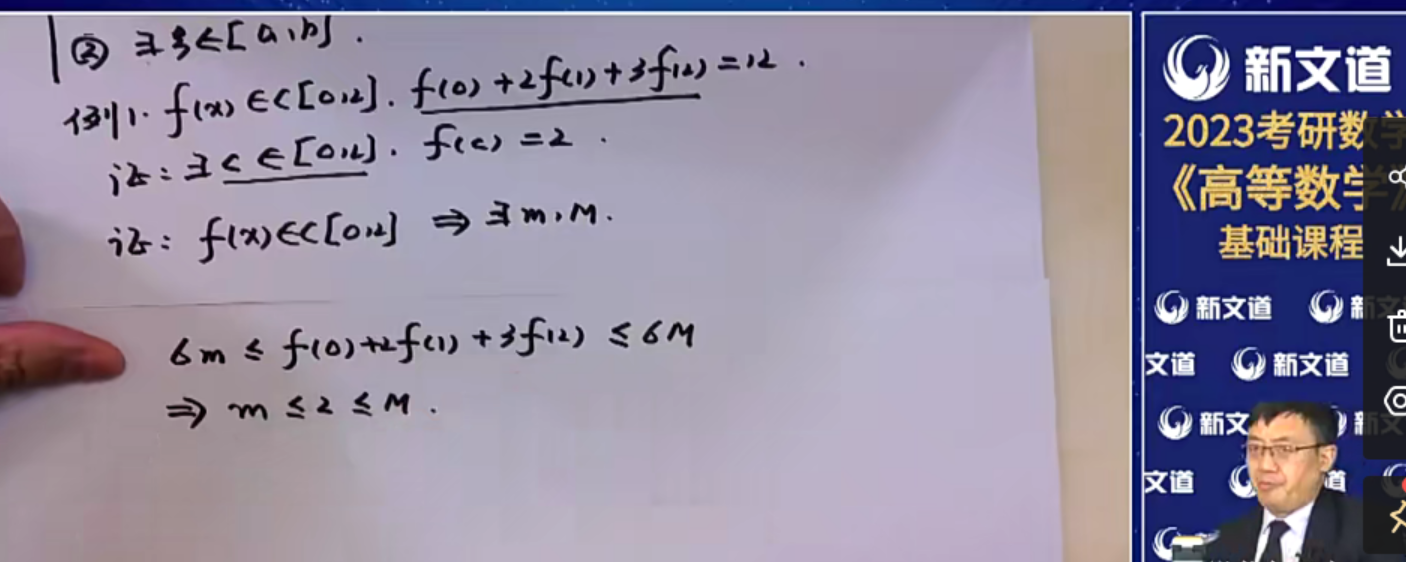 ② ∃ξ∈[a,b].
例1. f(x)∈C[0,2]. f(0)+2f(1)+3f(2)=12.
证: ∃c∈[0,2]. f(c)=2.
证: f(x)∈C[0,2] ⇒ ∃m,M.
6m ≤ f(0)+2f(1)+3f(2) ≤ 6M
⇒ m ≤ 2 ≤ M.
新文道
2023考研数学
《高等数学》
基础课程
新文道 新
文道 新文道
新文 新文
文道 道